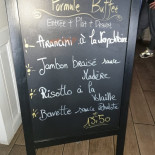 Formule Buffet
Entrée + Plat + Dessert
Arancini à la Napolitaine
Jambon Braisé sauce
Madère
Risotto à la
Volaille
Bavette sauce
13,50